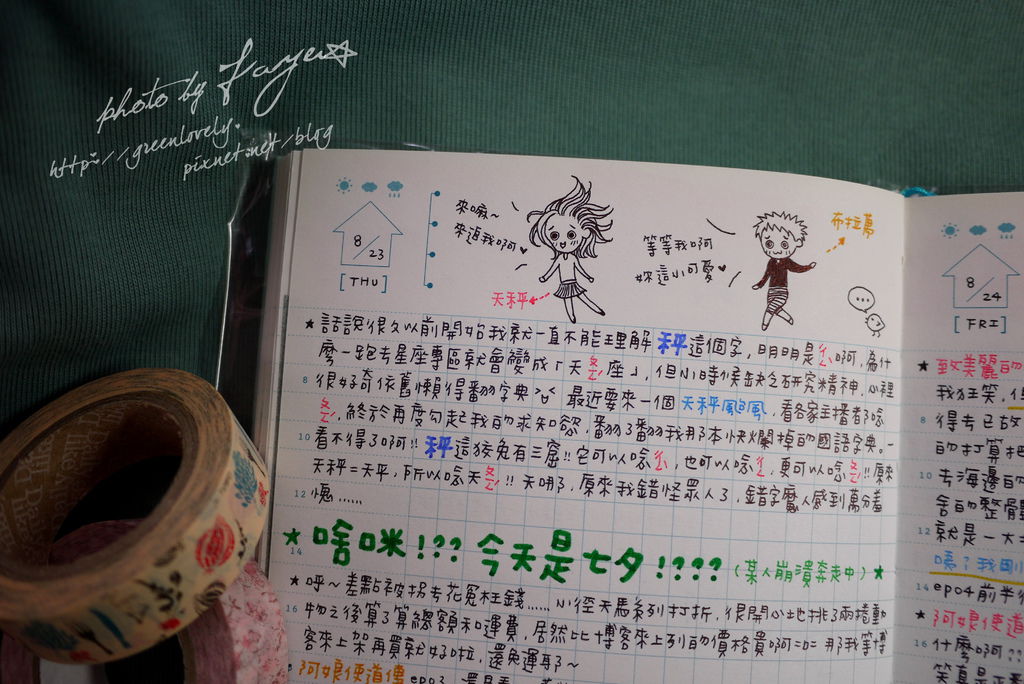 photo by Faye☆
http://greenlovely.
pixnet.net/blog
8/23
[THU]
來嘛~
來追我啊♥
天秤
等等我啊
妳這小可愛♥
布拉萬
...
★話說很久以前開始我就一直不能理解 秤這個字,明明是ㄔㄥˋ啊,為什
麼一跑去星座專區就會變成「天ㄆㄥˊ座」,但小時候缺乏研究精神,心裡
8 很好奇依舊懶得翻字典 最近要來一個 天秤颱風,看各家主播都唸
ㄆㄥˊ,終於再度勾起我的求知慾,翻了翻我那本快爛掉的國語字典。
10 看不得了啊!! 秤這狡兔有三窟!!它可以唸ㄔㄥ,也可以唸ㄔㄥˋ,更可以唸ㄆㄥˊ!!原來
天秤=天平,所以唸天ㄆㄥˊ!! 天哪,原來我錯怪眾人了,錯字魔人感到萬分羞
12 愧......
★啥咪!?? 今天是七夕!???? (某人崩潰奔走中)★
14
★呼~差點被拐去花冤枉錢......小徑天馬系列打折,很開心地挑了兩捲動
16 物之後算了算總額和運費,居然比博客來上列的價格貴啊 那我等博
客來上架再買就好啦,還免運耶~
阿娘使道傳 ep03
8/24
[FRI]
★致美麗的
我狂笑,
8 得去已故
的打算把
10 去海邊
舍的整骨
12 就是一大
嗎?我剛
14 ep04前半
★阿娘使道
16 什麼啊??
笑真是